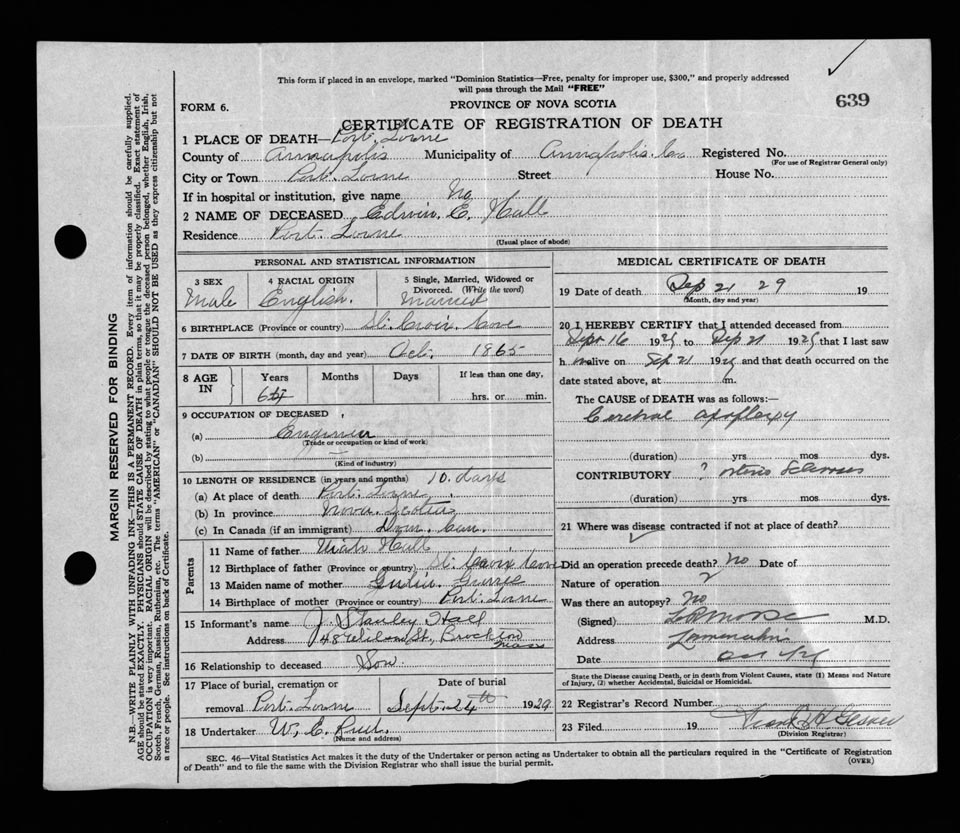 This form if placed in an envelope, marked "Dominion Statistics—Free, penalty for improper use, $300," and properly addressed
will pass through the Mail "FREE"
639
FORM 6.
PROVINCE OF NOVA SCOTIA
CERTIFICATE OF REGISTRATION OF DEATH
1 PLACE OF DEATH— Port Lorne
County of Annapolis Municipality of Annapolis Co Registered No.
(For use of Registrar General only)
City or Town Port Lorne Street House No.
If in hospital or institution, give name No
2 NAME OF DECEASED Edwin E. Hall
Residence Port Lorne
(Usual place of abode)
PERSONAL AND STATISTICAL INFORMATION
3 SEX 4 RACIAL ORIGIN 5 Single, Married, Widowed or Divorced. (Write the word)
Male English. Married
6 BIRTHPLACE (Province or country) St. Croix Cove
7 DATE OF BIRTH (month, day and year) Oct. 1865
8 AGE IN Years Months Days If less than one day,
hrs. or min.
9 OCCUPATION OF DECEASED
(a) Engineer
(Trade or occupation or kind of work)
(b)
(Kind of industry)
10 LENGTH OF RESIDENCE (in years and months) 10. days
(a) At place of death Port Lorne
(b) In province Nova Scotia
(c) In Canada (if an immigrant) Dom. Can.
Parents
11 Name of father Uriah Hall
12 Birthplace of father (Province or country) St. Croix Cove
13 Maiden name of mother
14 Birthplace of mother (Province or country) Port Lorne
15 Informant's name J. Stanley Hall
Address St, Brockton Mass
16 Relationship to deceased Son.
17 Place of burial, cremation or Date of burial
removal Port Lorne Sept. 24th 1929
18 Undertaker W. E.
(Name and address)
MEDICAL CERTIFICATE OF DEATH
19 Date of death Sep 21 29 19
(Month, day and year)
20 I HEREBY CERTIFY that I attended deceased from
Sept 16 1929 to Sep 21 1929 that I last saw
h m alive on Sep 21 1929 and that death occurred on the
date stated above, at m.
The CAUSE of DEATH was as follows:—
Cerebral apoplexy
(duration) yrs mos dys.
CONTRIBUTORY ? Arterio Sclerosis
(duration) yrs. mos. dys.
21 Where was disease contracted if not at place of death?
Did an operation precede death? no Date of
Nature of operation?
Was there an autopsy? No
(Signed) Morse M.D.
Address Lawrencetown
Date Oct
State the Disease causing Death, or in death from Violent Causes, state (1) Means and Nature of Injury, (2) whether Accidental, Suicidal or Homicidal.
22 Registrar's Record Number
23 Filed 19 Frank H Gesner
(Division Registrar)
SEC. 46—Vital Statistics Act makes it the duty of the Undertaker or person acting as Undertaker to obtain all the particulars required in the "Certificate of Registration
of Death" and to file the same with the Division Registrar who shall issue the burial permit.
(OVER)
MARGIN RESERVED FOR BINDING
N.B.—WRITE PLAINLY WITH UNFADING INK—THIS IS A PERMANENT RECORD. Every item of information should be carefully supplied.
AGE should be stated EXACTLY. PHYSICIANS should STATE CAUSE OF DEATH in plain terms, so that it may be properly classified. Exact statement of
OCCUPATION is very important. RACIAL ORIGIN will be described by stating to what people or tongue the deceased person belonged, whether English, Irish,
Scotch, French, German, Russian, Ruthenian, etc. The terms "AMERICAN" or "CANADIAN" SHOULD NOT BE USED as they express citizenship but not
a race or people. See instructions on back of Certificate.